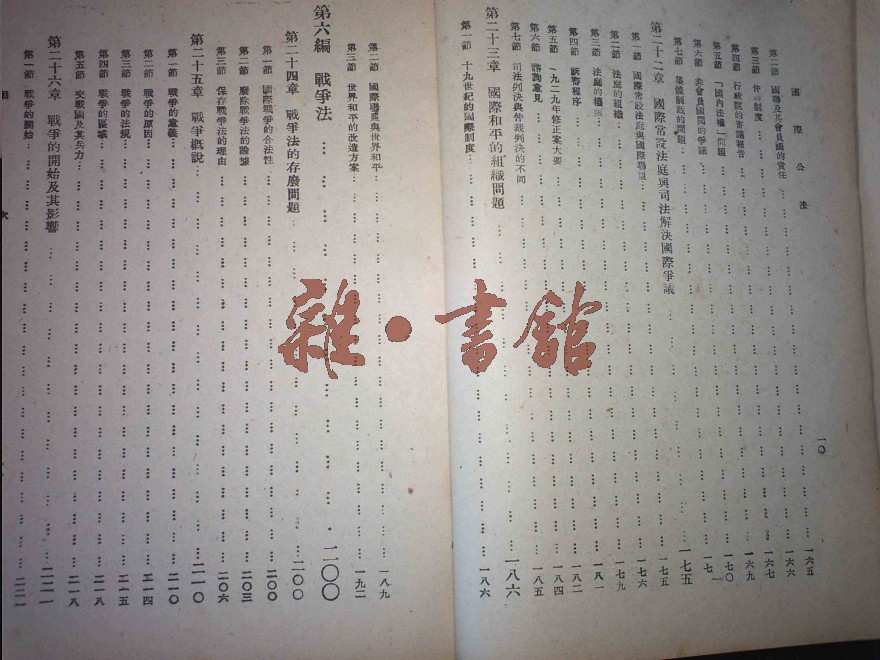 國際公法
一〇
第二節 國聯及其會員國的責任……一六五
第三節 仲裁制度……一六六
第四節 行政院的審議報告……一六七
第五節 「國內法權」問題……一六九
第六節 非會員國間的爭議……一七〇
第七節 集體制裁的問題……一七一
第二十二章 國際常設法庭與司法解決國際爭議……一七五
第一節 國際常設法庭與國際聯盟……一七五
第二節 法庭的組織……一七六
第三節 法庭的權……一七九
第四節 訴審程序……一八一
第五節 一九二九年修正案大要……一八二
第六節 諮詢意見……一八四
第七節 司法判決與仲裁判決的不同……一八五
第二十三章 國際和平的組織問題……一八六
第一節 十九世紀的國際制度……一八六
第二節 國際聯盟與世界和平……一八九
第三節 世界和平的改造方案……一九二
第六編 戰爭法……二〇〇
第二十四章 戰爭法的存廢問題……二〇〇
第一節 國際戰爭的合法性……二〇〇
第二節 廢除戰爭法的論據……二〇三
第三節 保存戰爭法的理由……二〇六
第二十五章 戰爭概說……二一〇
第一節 戰爭的意義……二一〇
第二節 戰爭的原因……二一四
第三節 戰爭的法規……二一五
第四節 戰爭的區域……二一八
第五節 交戰國及其兵力……二一八
第二十六章 戰爭的開始及其影響……二二一
第一節 戰爭的開始……二二一
目 次
雜·書館